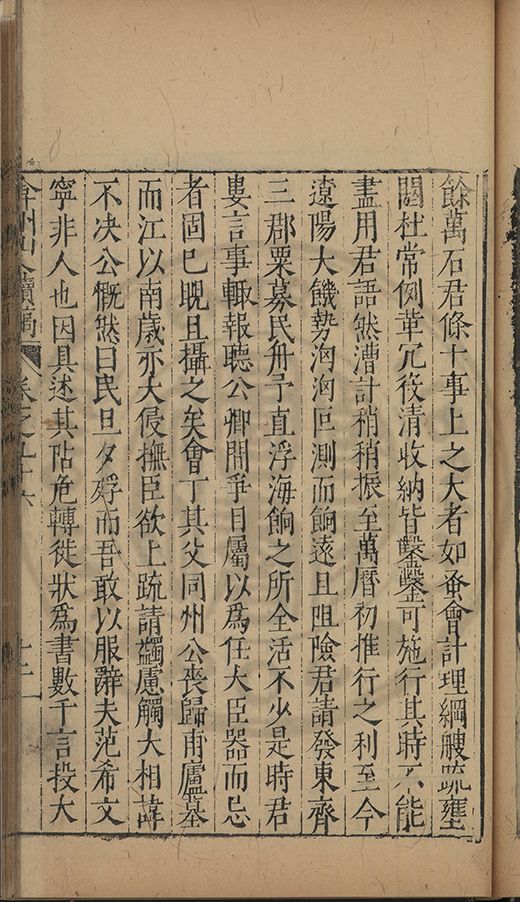 餘萬石君條十事上之大者如蚤會計理綱艘疏壅
閼杜常例革冗役清收納皆鑿鑿可施行其時不能
盡用君語然漕計稍稍振至萬曆初推行之利至今
遼陽大饑勢洶洶叵測而餉遠且阻險君請發東齊
三郡粟募民舟予直浮海餉之所全活不少是時君
婁言事輙報聽公卿間爭目屬以為任大臣器而忌
者固已睨且攝之矣會丁其父同州公喪歸甫廬墓
而江以南歲亦大侵撫臣欲上疏請蠲慮觸大相諱
不决公慨然曰民旦夕殍而吾敢以服辭夫范希文
寧非人也因具述其阽危轉徙狀爲書數千言投大
弇州山人續稿 卷之九十六